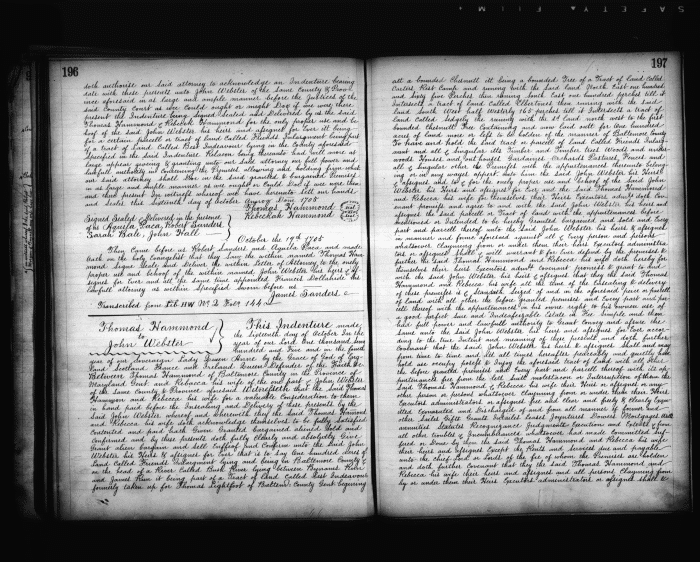 SAFETY FILM
196
doth authorise our said attorney to acknowledge an Indenture bearing
date with these presents unto John Webster of the same County & Prov-
ince aforesaid in as large and ample manner before the Justices of the
said County Court as we Could ought or might Doe if we were there
present the Indenture being Signed Sealed and Delivered by the said
Thomas Hammond & Rebekah Hammond for the only proper use and be-
hoof of the said John Webster his heirs and assigns for Ever it being
for a certain parcell or tract of land Called Friends Inlargement being part
of a tract of Land Called Best Indeavour lying in the County aforesaid
Specified in the said Indenture Relacon being thereunto had will more at
large appear giving & granting unto our said attorney our full power and
lawfull authority in Concerning the premises allowing and holding firm what
our said attorney shall doe in the said granted & bargained premises
in as large and ample manner as we might or Could Doe if we were then
and there present In witness whereof we have hereunto Sett our hands
and seales this Sixteenth day of October Annoq Dom 1705
Signed Sealed & Delivered in the presence
of us Aquila Paca, Robert Sanders
Sarah Bale, John Hall
Thomas Hammond
Rebeckah Hammond
October the 19th 1705
Then Came before us Robert Sanders and Aquila Paca and made
Oath on the holy Evangelist that they Say the within named Thomas Ham-
mond Signe Seale and Deliver the within Letter of Attorney to the only
proper use and behoof of the within named John Webster his heirs & as-
signs for Ever and all the same time appointed Francis Dollahide his
lawfull attorney as within Specified Sworn before us
James Sanders
Transcribed from Lib HW No 2 Folo 144
Thomas Hammond
to
John Webster
This Indenture made
the Sixteenth day of October In the
year of our Lord One thousand Seven
hundred and Five and in the fourth
year of our Sovereign Lady Queen
England Scotland France and Ireland Queen Defender of the Faith &c
Between Thomas Hammond of Baltimore County in the Province of
Maryland Gent. and Rebecca his wife of the one part & John Webster
of the same County & Province aforesaid Witnesseth that the said Thomas
Hammond and Rebecca his wife for a valuable Consideration to them
in hand paid before the Ensealing and Delivery of these presents by the
said John Webster whereof and wherewith they the said Thomas Hammond
and Rebecca his wife doth acknowledge themselves to be fully satisfied
Contented and paid hath Given Granted bargained aliened Sold and
Confirmed and by these presents doth fully Clearly and absolutely Give
Grant aliene bargain and Sell Enfeoff and Confirm unto the said John
Webster his Heirs & assigns for Ever that is to Say One hundred acres of
Land Called Friends Inlargement lying and being in Baltimore County
on the head of a River Called Bush River lying between Bynams Run
and James Run it being part of a Tract of Land Called Best Indeavour
formerly taken up for Thomas Lightfoot of Baltim County Gent beginning
197
att a bounded Chesnutt itt being a bounded Tree of a Tract of land Called
Carters Rest Camp and running with the said Land North East one hundred
and Sixty four Perches then running South East one hundred perches till it
Intersects a tract of land Called Elbertines then running with the said
Land South West half Westerly 163 perches till it Intersects a tract of
Land Called Sedgely then running with the sd Land north west to the first
bounded Chesnutt Tree Containing and now Laid out for One hundred
acres of land more or less to be holden of the mannor of Baltimore County
To have and hold the said tract or parcell of Land Called Friends Inlarge-
ment and all & Singular its Timber and Timber trees Woods and under-
woods Houses and out houses Gardaines Orchards Pastures Fences and
all & Singular other its premises with the appurtenances thereunto belong-
ing or in any wayes appert unto him the said John Webster his Heirs
& assignes and to & for the only proper use and behoof of the said John
Webster his Heirs and assignes for Ever and the said Thomas Hammond
and Rebecca his wife for themselves their Heirs Executors admrs doth Cov-
enant promise and agree to and with the said John Webster his heirs and
assignes the said parcell or Tract of Land with the appurtenances before
mentioned or Intended to be hereby Granted bargained and sold and Every
part and parcell thereof unto the said John Webster his heirs & assignes
in manner and forme aforesaid against all & Every person and persons
whatsoever Claymeing from or under them their heirs Executors administra-
tors or assignes shall & will warrant & for Ever defend by these presents &
further the said Thomas Hammond and Rebecca his wife doth hereby for
themselves their heirs Executors admrs Covenant promise & grant to and
with the said John Webster his heirs & assignes that they the said Thomas
Hammond and Rebecca his wife att the time of the Ensealing & delivery
of these presents is & standeth Seized of and in the aforesaid piece or parcell
of Land with all other the before granted premises and Every part and par-
cell thereof with the appurtenances in his owne right & to his owne use of
a good perfect Sure and Indefeazable Estate in Fee Simple and that
had full power and lawfull authority to Grant Convey and assure the
same unto the said John Webster his heirs and assignes for Ever accor-
ding to the true Intent and meaning of these presents and doth further
Covenant that the said John Webster his heirs & assignes shall and may
from time to time and att all times hereafter peaceably and quietly have
hold use occupy possess & Enjoy the aforesaid tract of Land with all other
the before granted premises and Every part and parcell thereof with its ap-
purtenances free from the lett Suit molestation or Interruption of them the
said Thomas Hammond & Rebecca his wife their Heirs or assignes or any
other person or persons whatsoever Claymeing from or under them their Heirs
Executors administrators or assignes free and Clear and freely & Clearly Acquit-
itted Exonerated and Discharged of and from all manner of former and
other Sales Gifts Grants Intailes Leases Joyntures Dowers Mortgages and
annuities Statutes Recognizances Judgements Executions and Extents & from
all other trouble & Incumberances whatsoever had made Committed suf-
fered or done by him the said Thomas Hammond and Rebecca his wife
their heirs and assignes Except the Rents and Services due and payable
unto the Chief Lord or Lords of the fee of whom the premises are holden
and doth further Covenant that they the said Thomas Hammond and
Rebecca his wife their Heirs and assignes and all persons Claymeing from
by or under them their Heirs Executors administrators or assignes shall &